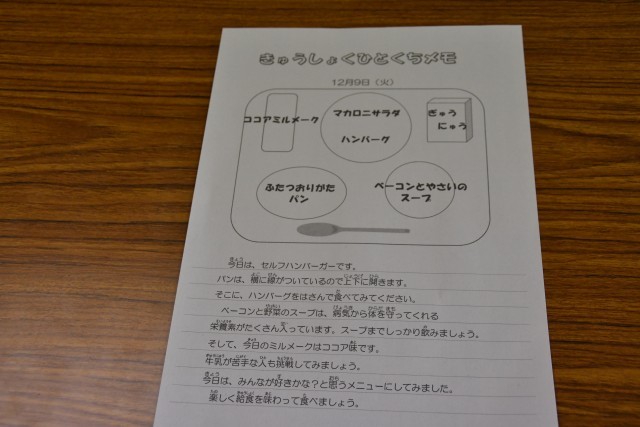 きゅうしょくひとくちメモ
12月9日（火）
ココアミルメーク
マカロニサラダ
ハンバーグ
ぎゅう
にゅう
ふたつおりがた
パン
ベーコンとやさいの
スープ
今日は、セルフハンバーガーです。
パンは、横に線がついているので上下に開きます。
そこに、ハンバーグをはさんで食べてみてください。
ベーコンと野菜のスープは、病気から体を守ってくれる
栄養素がたくさん入っています。スープまでしっかり飲みましょう。
そして、今日のミルメークはココア味です。
牛乳が苦手な人も挑戦してみましょう。
今日は、みんなが好きかな？と思うメニューにしてみました。
楽しく給食を味わって食べましょう。